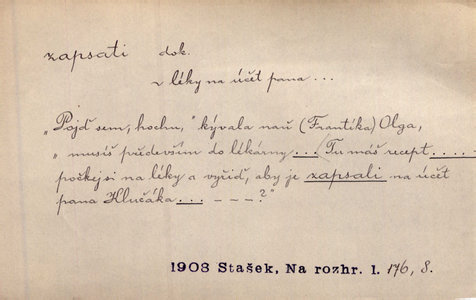 zapsati dok.
~ léky na účet pana...
„Pojď sem, hochu," kývala naň (Frantíka) Olga,
„musíš především do lékárny... Tu máš recept....-
počkej si na léky a vyřiď, aby je zapsali na účet
pana Klučáka... - - - ?"
1908 Stašek, Na rozhr. 1. 176, 8.